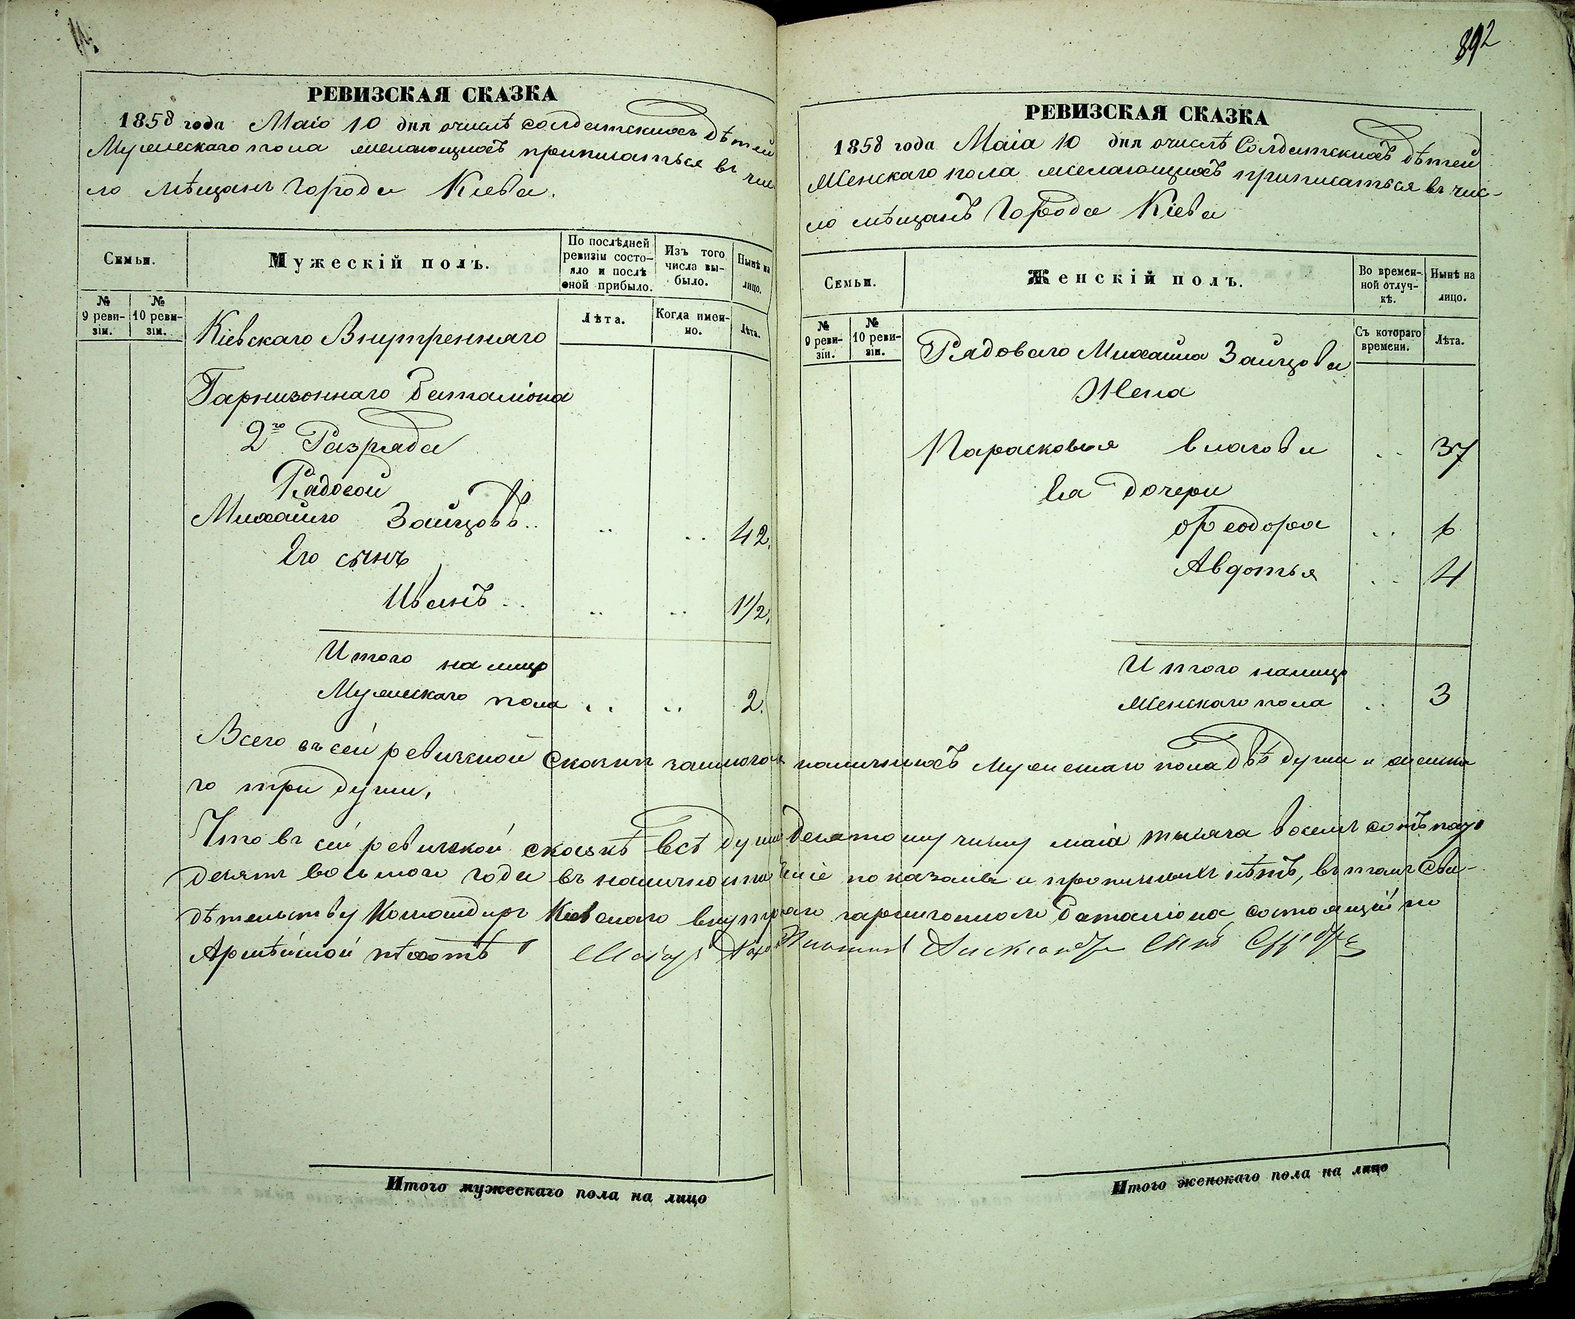 892
РЕВИЗСКАЯ СКАЗКА
1858 года Маiо 10 дня очислѣ солдатскихъ дѣтей
Мужескаго пола желающихъ приписаться въ чис
ло мѣщанъ города Кiева.
Семьи.
Мужескiй полъ.
По послѣдней ревизiи состояло и послѣ оной прибыло.
Изъ того числа выбыло.
Нынѣ на лицо.
№ 9 ревизiи.
№ 10 ревизiи.
Лѣта.
Когда именно.
Лѣта.
Кiевскаго Внутренняго
Гарнизоннаго Баталiона
2го Разряда
Рядовой
Михайло Зайцовъ .. .. .. 42.
Его сынъ
Иванъ .. .. .. 1 1/2.
Итого на лицо
Мужескаго пола .. .. 2.
РЕВИЗСКАЯ СКАЗКА
1858 года Маiя 10 дня очислѣ Солдатскихъ дѣтей
Женскаго пола желающихъ приписаться въ чис-
ло мѣщанъ Города Кiева
Семьи.
Женскiй полъ.
Во временной отлучкѣ.
Нынѣ на лицо.
№ 9 ревизiи.
№ 10 ревизiи.
Съ котораго времени.
Лѣта.
Рядоваго Михайла Зайцова
Жена
Парасковья .. 37
Ея дочери
Феодора .. 6
Авдотья .. 4
Итого налицо
Женскаго пола .. 3
Всего въ сей ревизской сказкѣ наличныхъ Мужескаго пола двѣ души и женска
го три души.
Что въ сей ревизской сказкѣ всѣ души десятому числу маiя тысяча восемь сотъ пять
десятъ восьмаго года въ наличности показаны и прописныхъ нѣтъ, въ томъ Сви-
дѣтельствую Командиръ Кiевскаго внутр гарнизоннаго баталiона состоящiй по
Армейской пѣхотѣ Маiоръ Александръ
Итого мужескаго пола на лицо
Итого женскаго пола на лицо